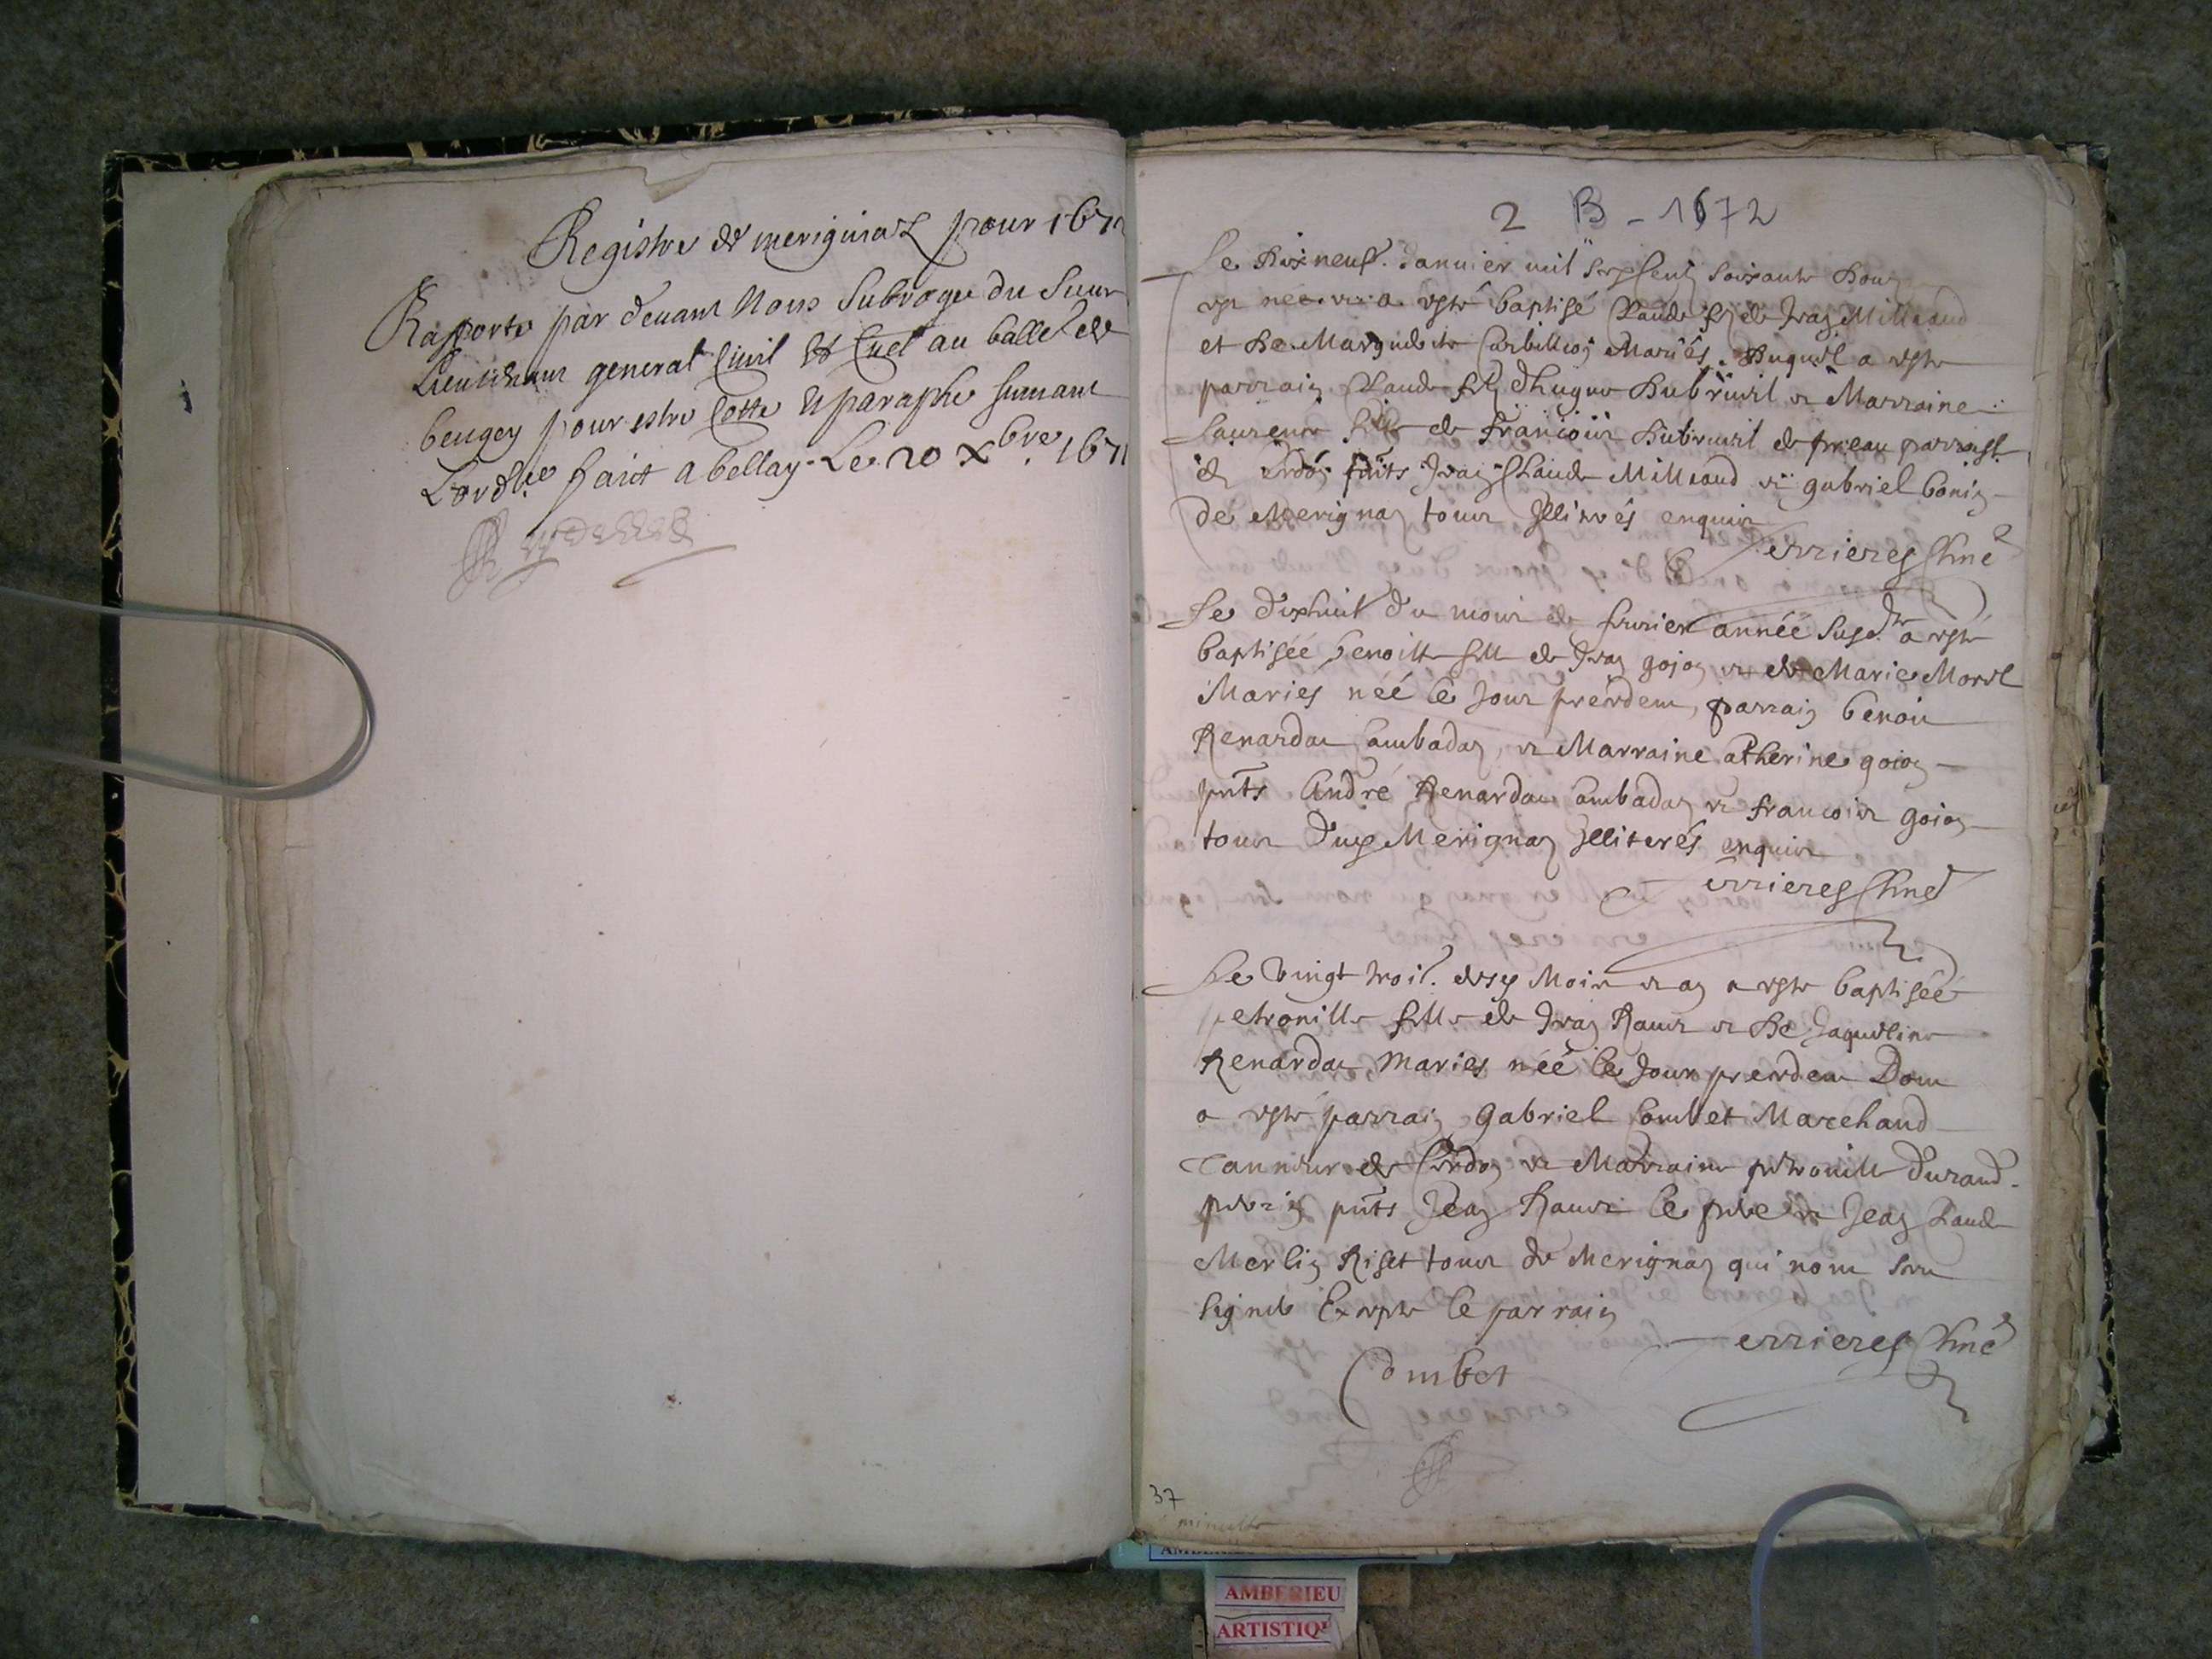 Registre de merignaz pour 1672
Raporte par devant Nous Subroge du Sieur
Lieutenant general Civil & Cnel au balle de
beugey pour estre Cotte & paraphe suivant
Lordce fait a bellay Le 20 Xbre 1671
2 B - 1672
Le dix neuf Janvier mil six cent soixante douze
est née et a este baptisé Claude fils de Jean Milliand
et de Marguerite Corbillion Mariés, duquel a este
parrain Claude fils d'hugue dubrueil et Marraine
Laurence fille de francois dubrueil de preau parroisse
de Cerdon pnts Jean Claude Milliand et gabriel bonin
de Merignaz tous Illiterés enquis
errieres Cuné
Le dixhuit du mois de fevrier année susdte a este
baptiséé benoitte fille de Jean gojon et de Marie Morel
Maries néé le Jour precedent, parrain benoit
Renardat Cambadon, et Marraine atherine goion
pnts André Renardat Cambadon et francois goion
tous dud Merignaz Illiterés enquis
errieres Cuné
Le vingt trois desd Mois et an a este baptiséé
petronille fille de Jean Raux et de Jaqueline
Renardat Maries néé le Jour precedent Dont
a este parrain Gabriel Combet Marchand
Tanneur de Cerdon et Marraine petronille Durand
pnts Jean Raux le et Jean Claude
Merlin Riset tous de Merignaz qui nont sceu
signer Excepte le parrain
errieres Cuné
Combet
37
minutte
AMBERIEU
ARTISTIQU